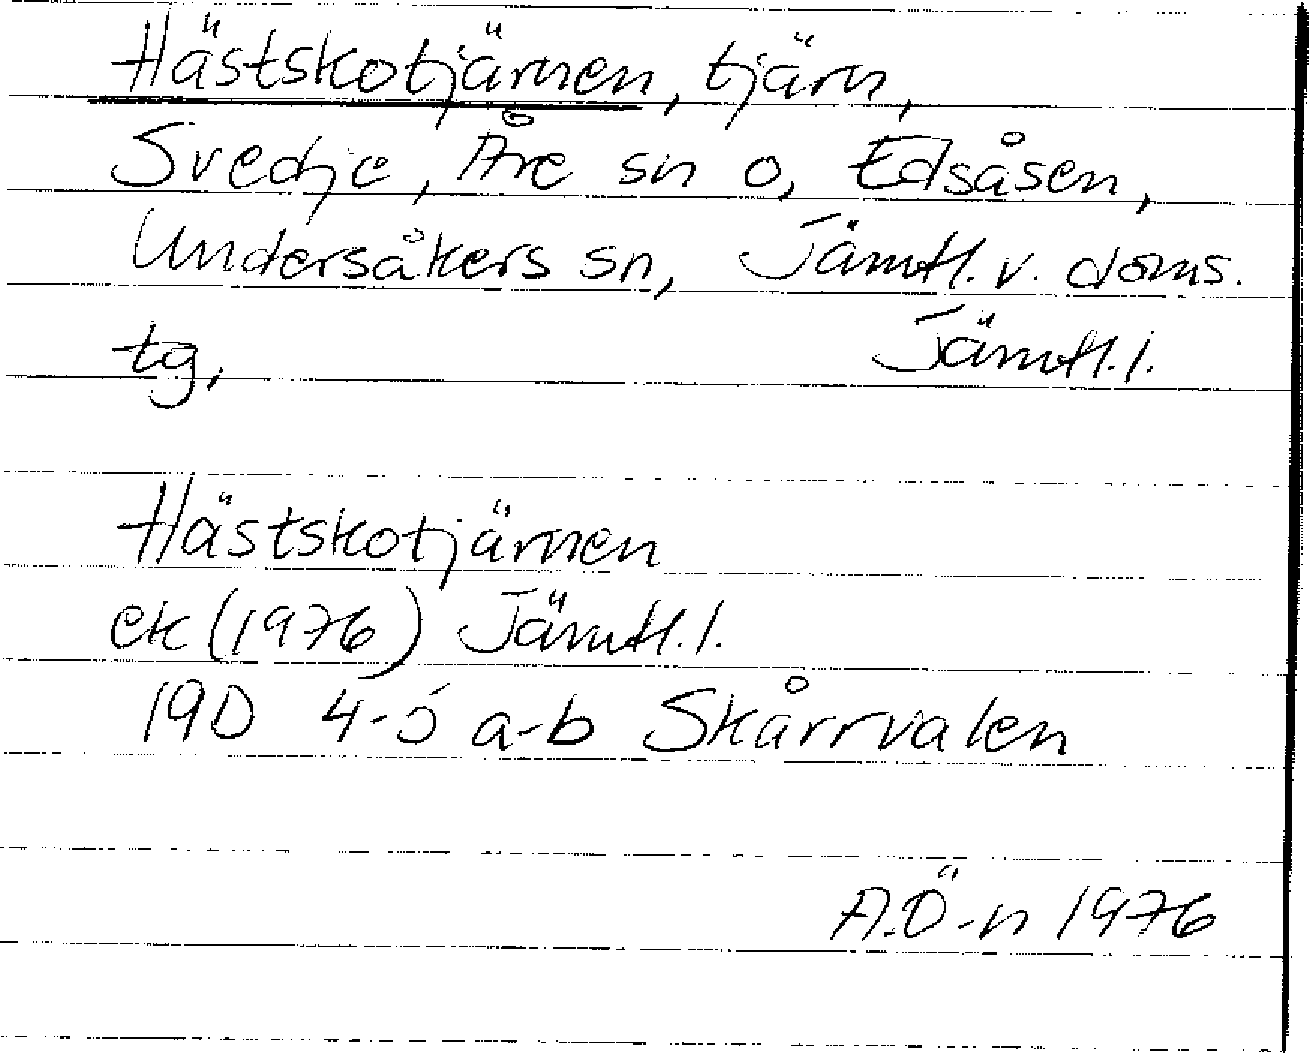 Hästskotjärnen, tjärn,
Svedje, Åre sn o, Edsåsen,
Undersåkers sn, Jämtl. v. doms.
tg, Jämtl. l.
Hästskotjärnen
ek (1976) Jämtl. l.
19D 4-5 a-b Skårrvalen
A.Ö-n 1976